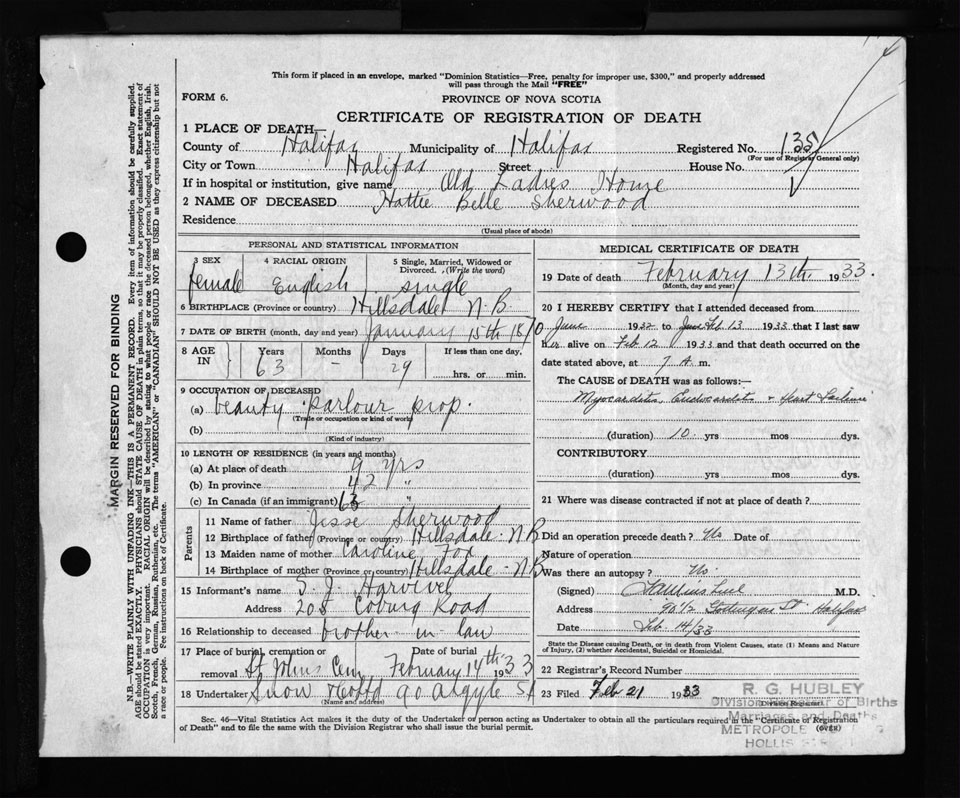 This form if placed in an envelope, marked "Dominion Statistics—Free, penalty for improper use, $300," and properly addressed
will pass through the Mail "FREE"
FORM 6.
PROVINCE OF NOVA SCOTIA
CERTIFICATE OF REGISTRATION OF DEATH
1 PLACE OF DEATH—
County of Halifax Municipality of Halifax Registered No. 135
(For use of Registrar General only)
City or Town Halifax Street House No.
If in hospital or institution, give name Old Ladies Home
2 NAME OF DECEASED Hattie Belle Sherwood
Residence
(Usual place of abode)
PERSONAL AND STATISTICAL INFORMATION
3 SEX 4 RACIAL ORIGIN 5 Single, Married, Widowed or
Divorced. (Write the word)
female English single
6 BIRTHPLACE (Province or country) Hillsdale N.B.
7 DATE OF BIRTH (month, day and year) January 15th 1870
8 AGE IN Years Months Days If less than one day,
63 - 29 hrs. or min.
9 OCCUPATION OF DECEASED
(a) beauty parlour prop.
(Trade or occupation or kind of work)
(b)
(Kind of industry)
10 LENGTH OF RESIDENCE (in years and months)
(a) At place of death 9 yrs
(b) In province 42 "
(c) In Canada (if an immigrant) 63 "
Parents
11 Name of father Jesse Sherwood
12 Birthplace of father (Province or country) Hillsdale - N B
13 Maiden name of mother Caroline Fox
14 Birthplace of mother (Province or country) Hillsdale - N B
15 Informant's name S. J.
Address 208 Coburg Road
16 Relationship to deceased brother-in-law
17 Place of burial, cremation or Date of burial
removal St Johns Cem February 14th 1933
18 Undertaker Snow & Co Ltd 90 Argyle St
(Name and address)
MEDICAL CERTIFICATE OF DEATH
19 Date of death February 13th 1933.
(Month, day and year)
20 I HEREBY CERTIFY that I attended deceased from
June 1932 to Feb 13 1933 that I last saw
her alive on Feb 12 1933 and that death occurred on the
date stated above, at 7 A. m.
The CAUSE OF DEATH was as follows:—
Myocarditis, Endocarditis & Heart Failure
(duration) 10 yrs mos dys.
CONTRIBUTORY
(duration) yrs mos dys.
21 Where was disease contracted if not at place of death?
Did an operation precede death? No Date of
Nature of operation
Was there an autopsy? No.
(Signed) M.D.
Address Gottingen St. Halifax
Date Feb. 14/33
State the Disease causing Death, or in death from Violent Causes, state (1) Means and
Nature of Injury, (2) whether Accidental, Suicidal or Homicidal.
22 Registrar's Record Number
23 Filed Feb 21 1933
(Division Registrar)
R. G. HUBLEY
Division Registrar of Births
Marriages and Deaths
METROPOLE
HOLLIS
Sec. 46—Vital Statistics Act makes it the duty of the Undertaker or person acting as Undertaker to obtain all the particulars required in the "Certificate of Registration
of Death" and to file the same with the Division Registrar who shall issue the burial permit.
(OVER)
MARGIN RESERVED FOR BINDING
N.B.—WRITE PLAINLY WITH UNFADING INK—THIS IS A PERMANENT RECORD. Every item of information should be carefully supplied.
AGE should be stated EXACTLY. PHYSICIANS should STATE CAUSE OF DEATH in plain terms, so that it may be properly classified. Exact statement of
OCCUPATION is very important. RACIAL ORIGIN will be described by stating to what people or race the deceased person belonged, whether English, Irish,
Scotch, French, German, Russian, Ruthenian, etc. The terms "AMERICAN" or "CANADIAN" SHOULD NOT BE USED as they express citizenship but not
a race or people. Fee instructions on back of Certificate.